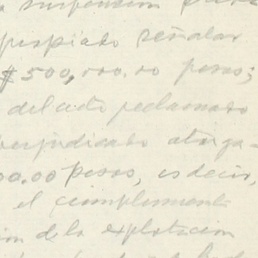 suspensión para
respiato señalar
$500,000.00 pesos;
del acto reclamado
perjudicado otorga-
00.00 pesos, es decir,
el cumplimiento
ion de la explotacion